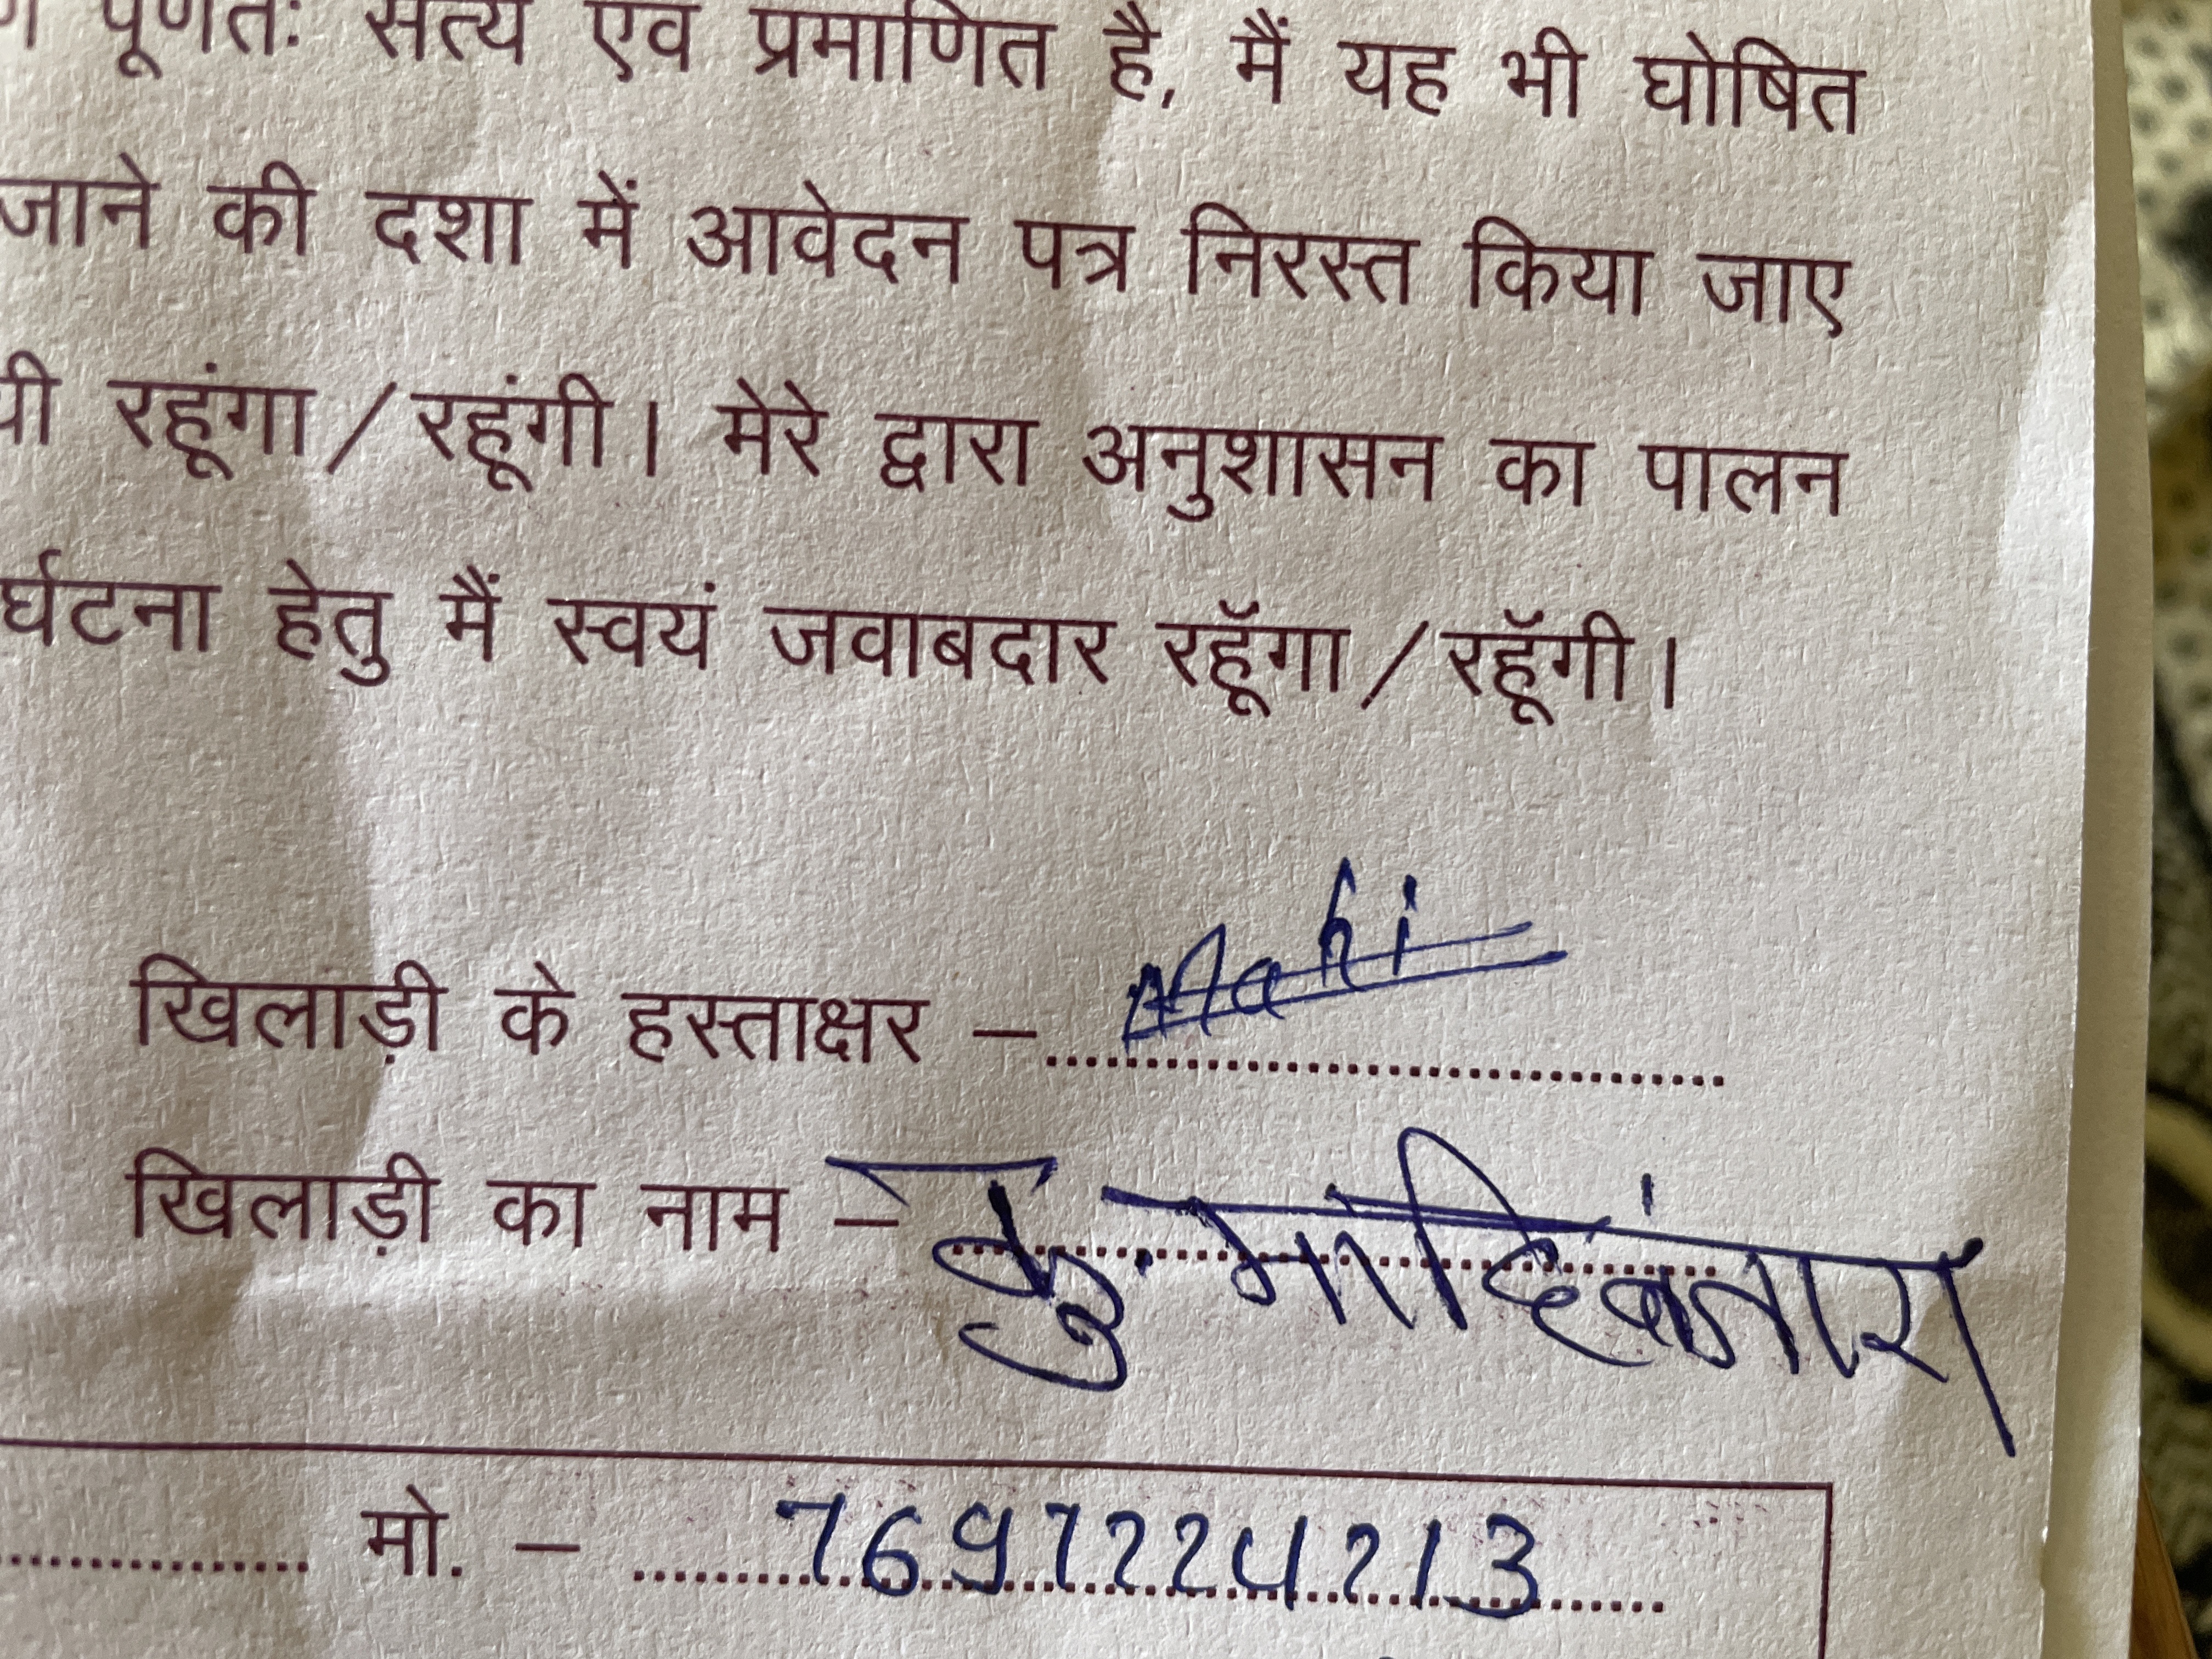 पूर्णतः सत्य एवं प्रमाणित है, मैं यह भी घोषित
जाने की दशा में आवेदन पत्र निरस्त किया जाए
यी रहूंगा/रहूंगी। मेरे द्वारा अनुशासन का पालन
र्घटना हेतु मैं स्वयं जवाबदार रहूॅगा/रहूॅगी।
खिलाड़ी के हस्ताक्षर – Mahi
खिलाड़ी का नाम – कु. माहि
मो. – 7697224213